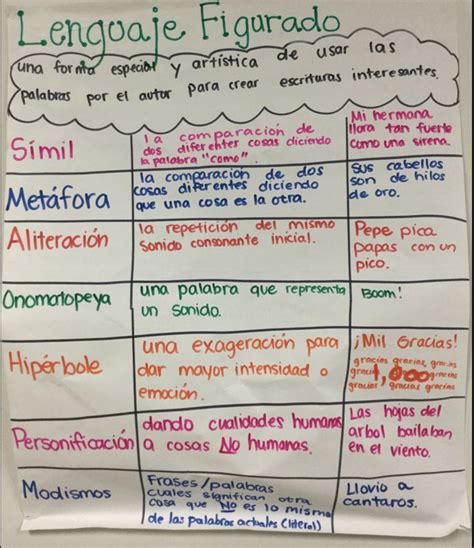 Lenguaje Figurado
una forma especial y artística de usar las
palabras por el autor para crear escrituras interesantes.
Símil
la comparación de
dos diferentes cosas diciendo
la palabra "como".
Mi hermana
llora tan fuerte
como una sirena.
Metáfora
la comparación de dos
cosas diferentes diciendo
que una cosa es la otra.
Sus cabellos
son de hilos
de oro.
Aliteración
la repetición del mismo
sonido consonante inicial.
Pepe pica
papas con un
pico.
Onomatopeya
una palabra que representa
un sonido.
Boom!
Hipérbole
una exageración para
dar mayor intensidad o
emoción.
¡Mil Gracias!
gracias gracias, gracias
gracias gracias gracias
Personificación
dando cualidades humanas
a cosas No humanas.
Las hojas del
arbol bailaban
en el viento.
Modismos
Frases/palabras
cuales significan otra
cosa que NO es lo mismo
de las palabras actuales (literal)
Llovio a
cantaros.